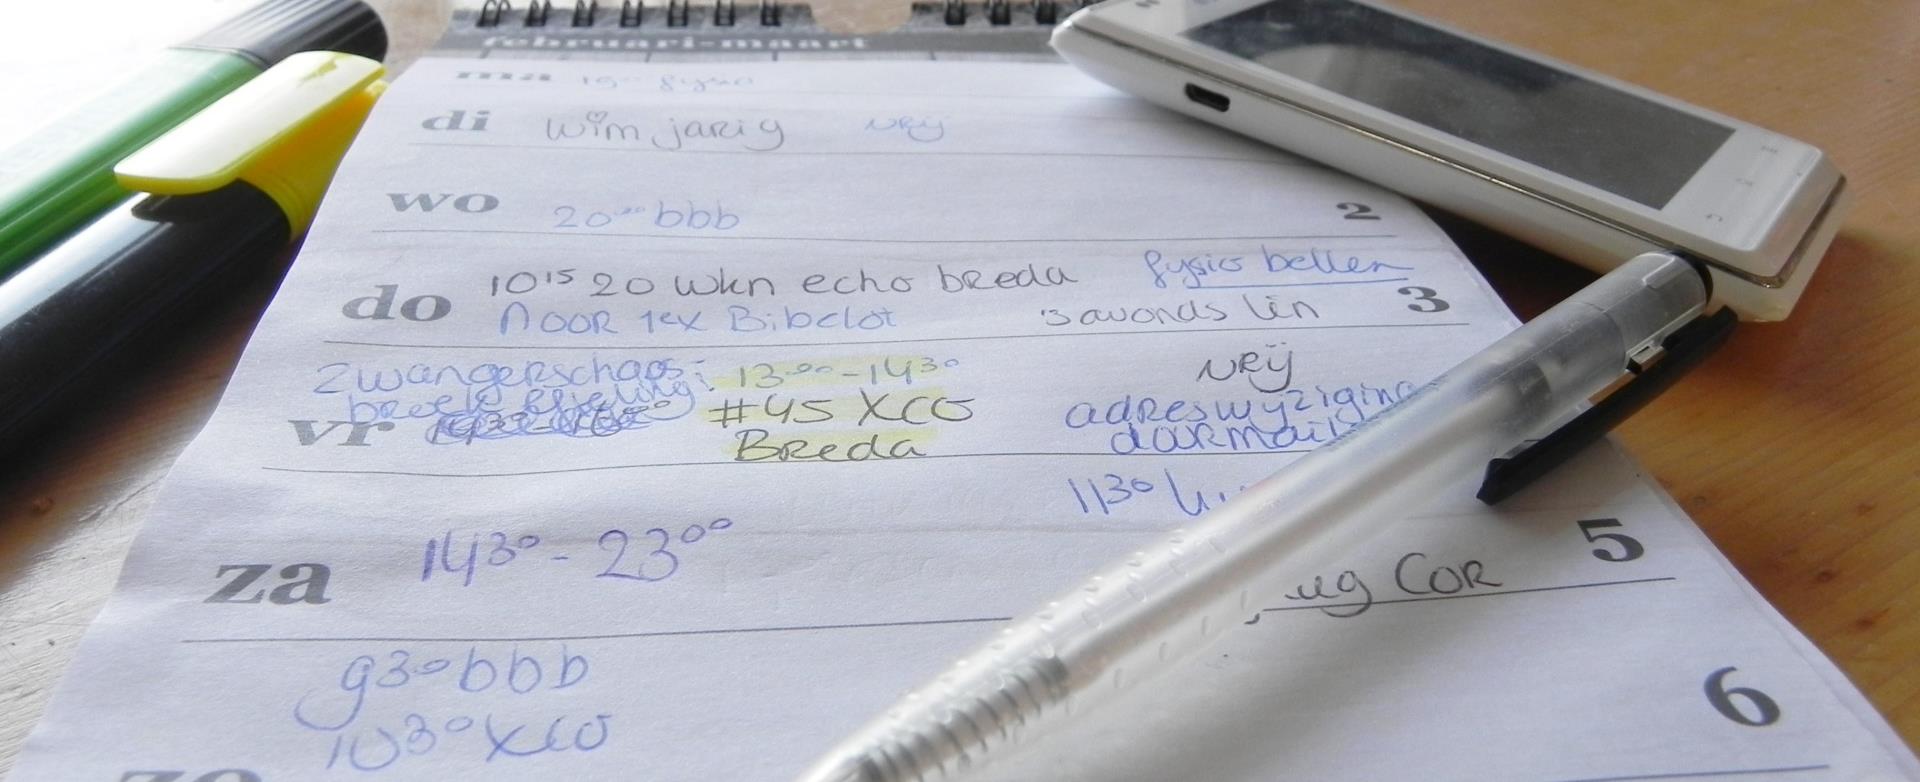 februari-maart
ma fysio
di wim jarig vrij
wo 20 bbb 2
do 10¹⁵ 20 wkn echo breda fysio bellen
Noor 1ex Bibelot 's avonds lin 3
Zwangerschaps: 13⁰⁰-14³⁰ vrij
vr #45 XCO adreswijziging
Breda
11³⁰
za 14³⁰ - 23⁰⁰ 5
COR
9³⁰ bbb
10³⁰ XCO 6
zo